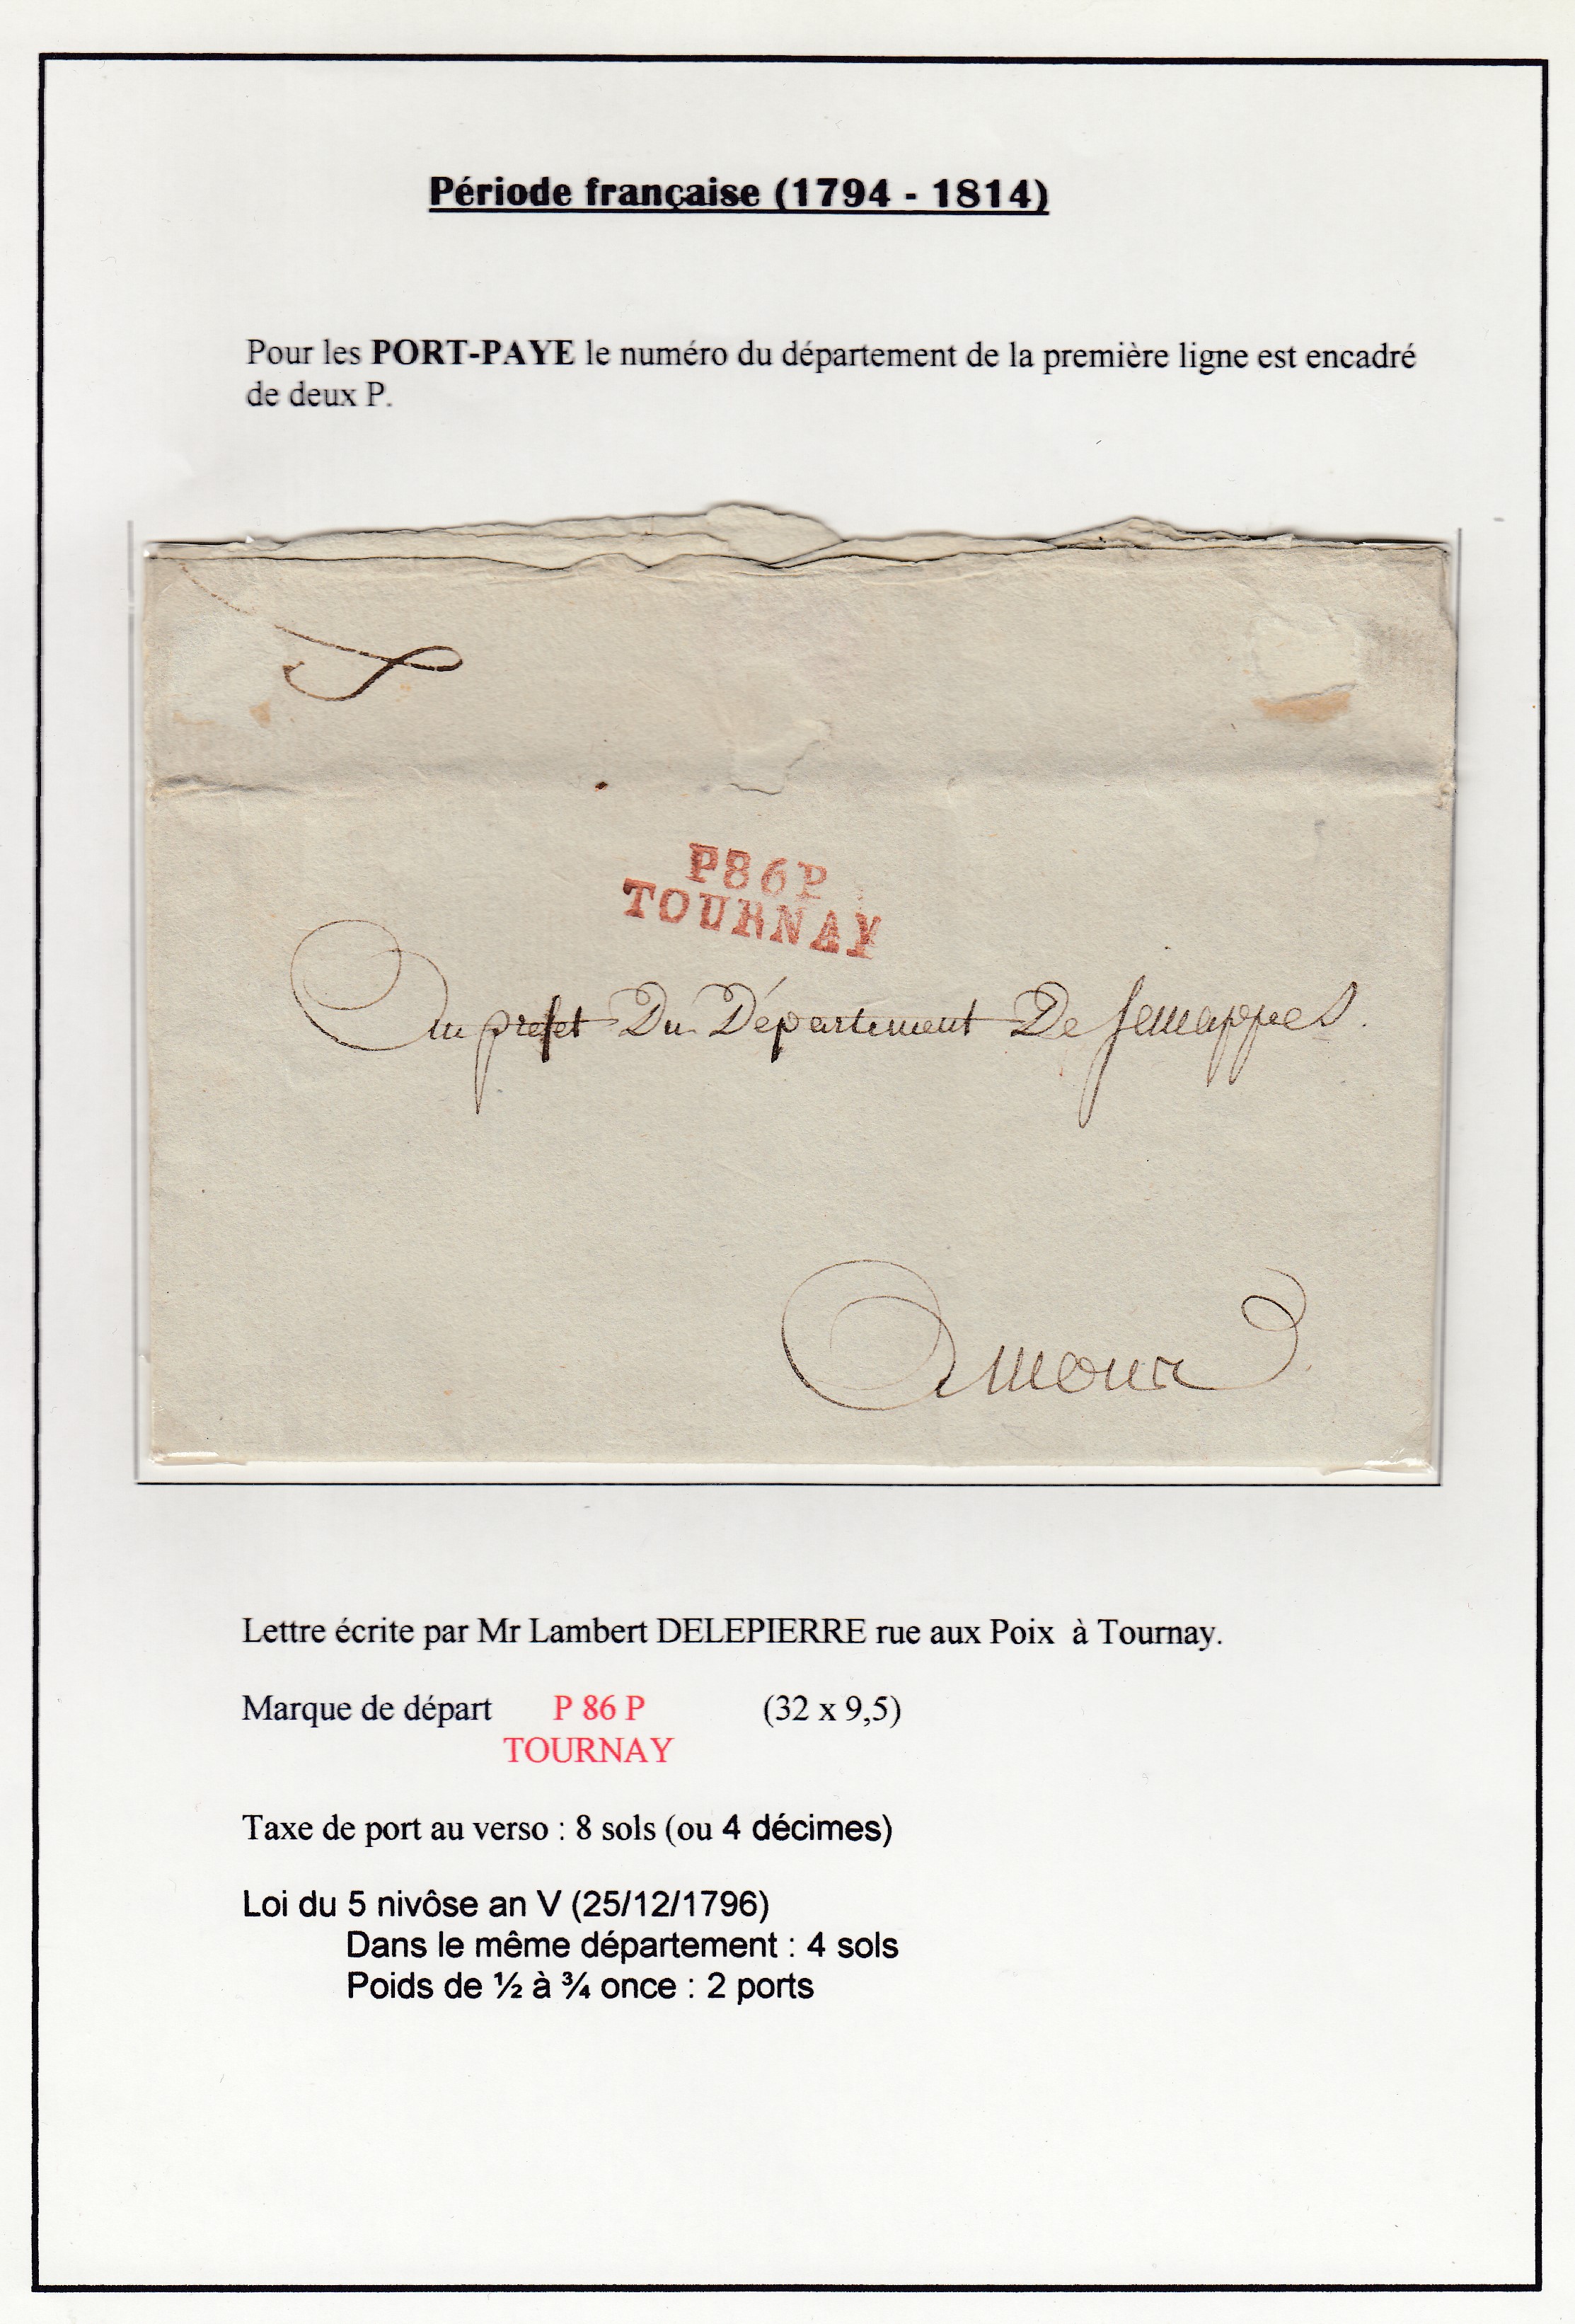 Période française (1794 - 1814)
Pour les PORT-PAYE le numéro du département de la première ligne est encadré
de deux P.
P86P
TOURNAY
Au préfet Du Département De Jemappes.
A mons
Lettre écrite par Mr Lambert DELEPIERRE rue aux Poix à Tournay.
Marque de départ P 86 P (32 x 9,5)
TOURNAY
Taxe de port au verso : 8 sols (ou 4 décimes)
Loi du 5 nivôse an V (25/12/1796)
Dans le même département : 4 sols
Poids de ½ à ¾ once : 2 ports